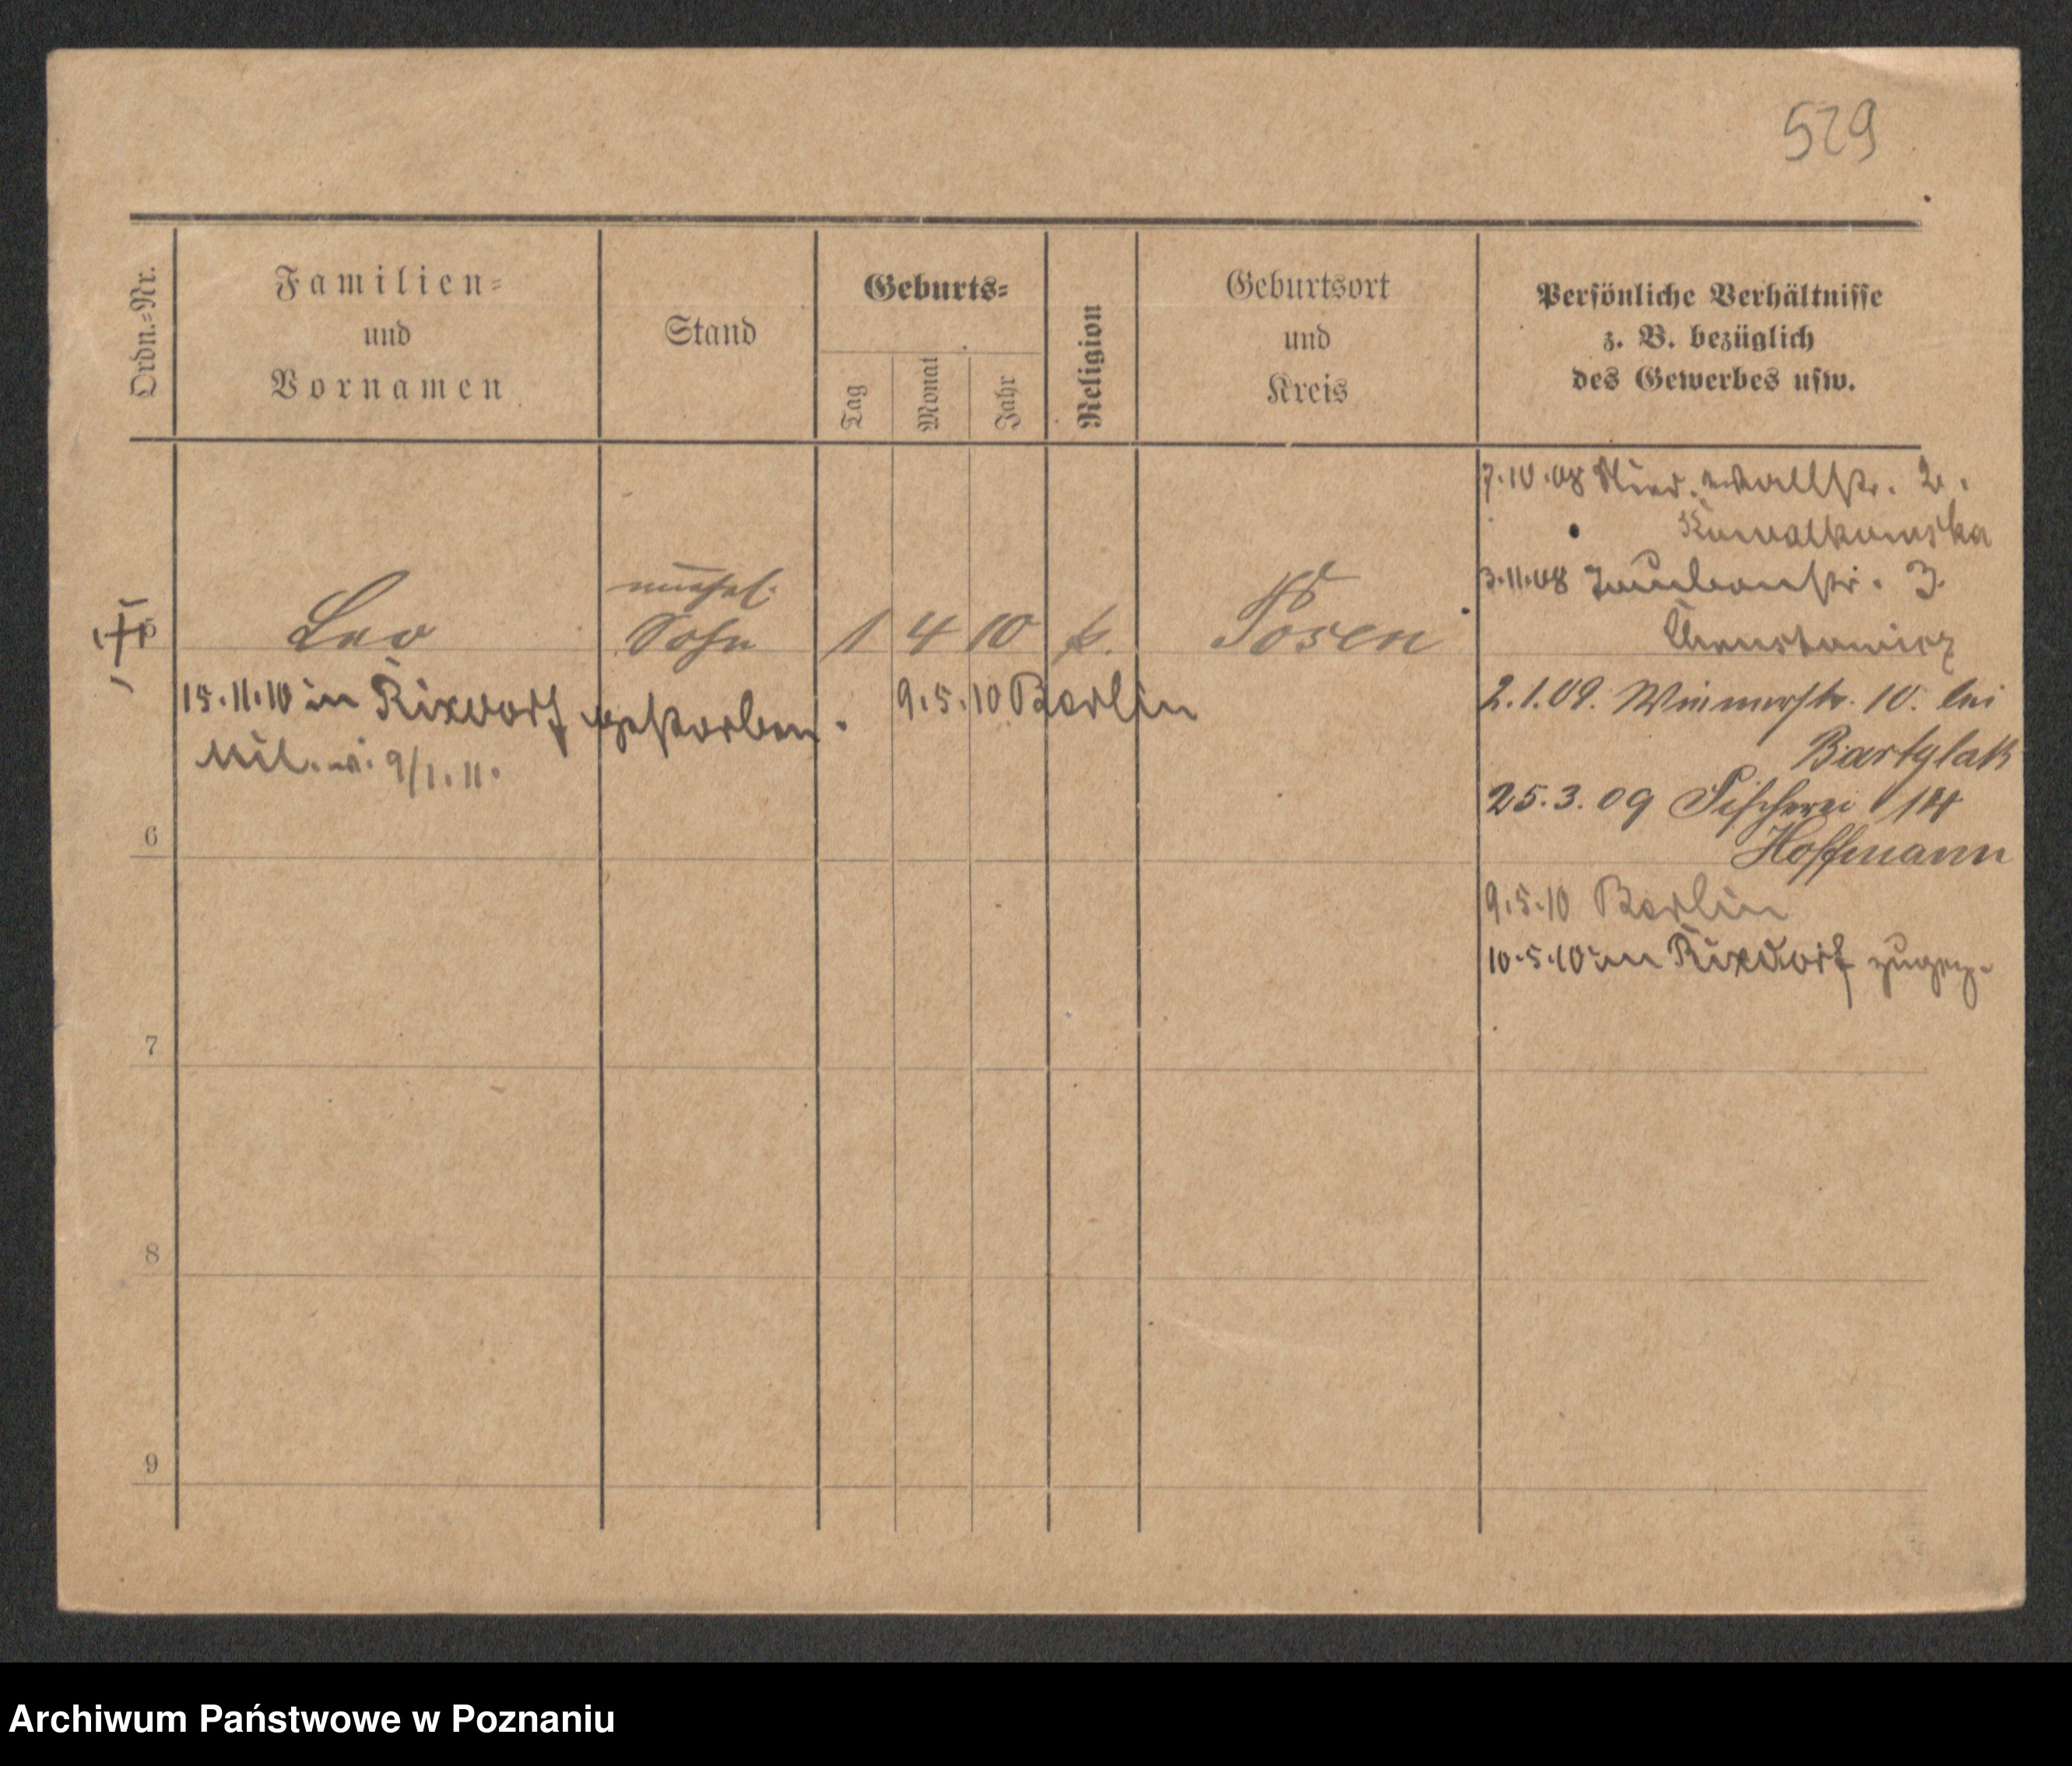 529
Ordn.-Nr.
Familien-
und
Vornamen
Stand
Geburts-
Tag
Monat
Jahr
Religion
Geburtsort
und
Kreis
Persönliche Verhältnisse
z. B. bezüglich
des Gewerbes usw.
7.10.08 Nied. wallstr. 2.
Kowalkowska
3.11.08 Taubenstr. 3.
unehel.
5 Leo Sohn 1 4 10 k. Posen
2.1.09. Wienerstr. 10. bei
Bartylak
15.11.10 in Rixdorf gestorben. 9.5.10 Berlin
9/1.11.
25.3.09 Fischerei 14
Hoffmann
6
9.5.10 Berlin
10.5.10 in Rixdorf zugez.
7
8
9
Archiwum Państwowe w Poznaniu